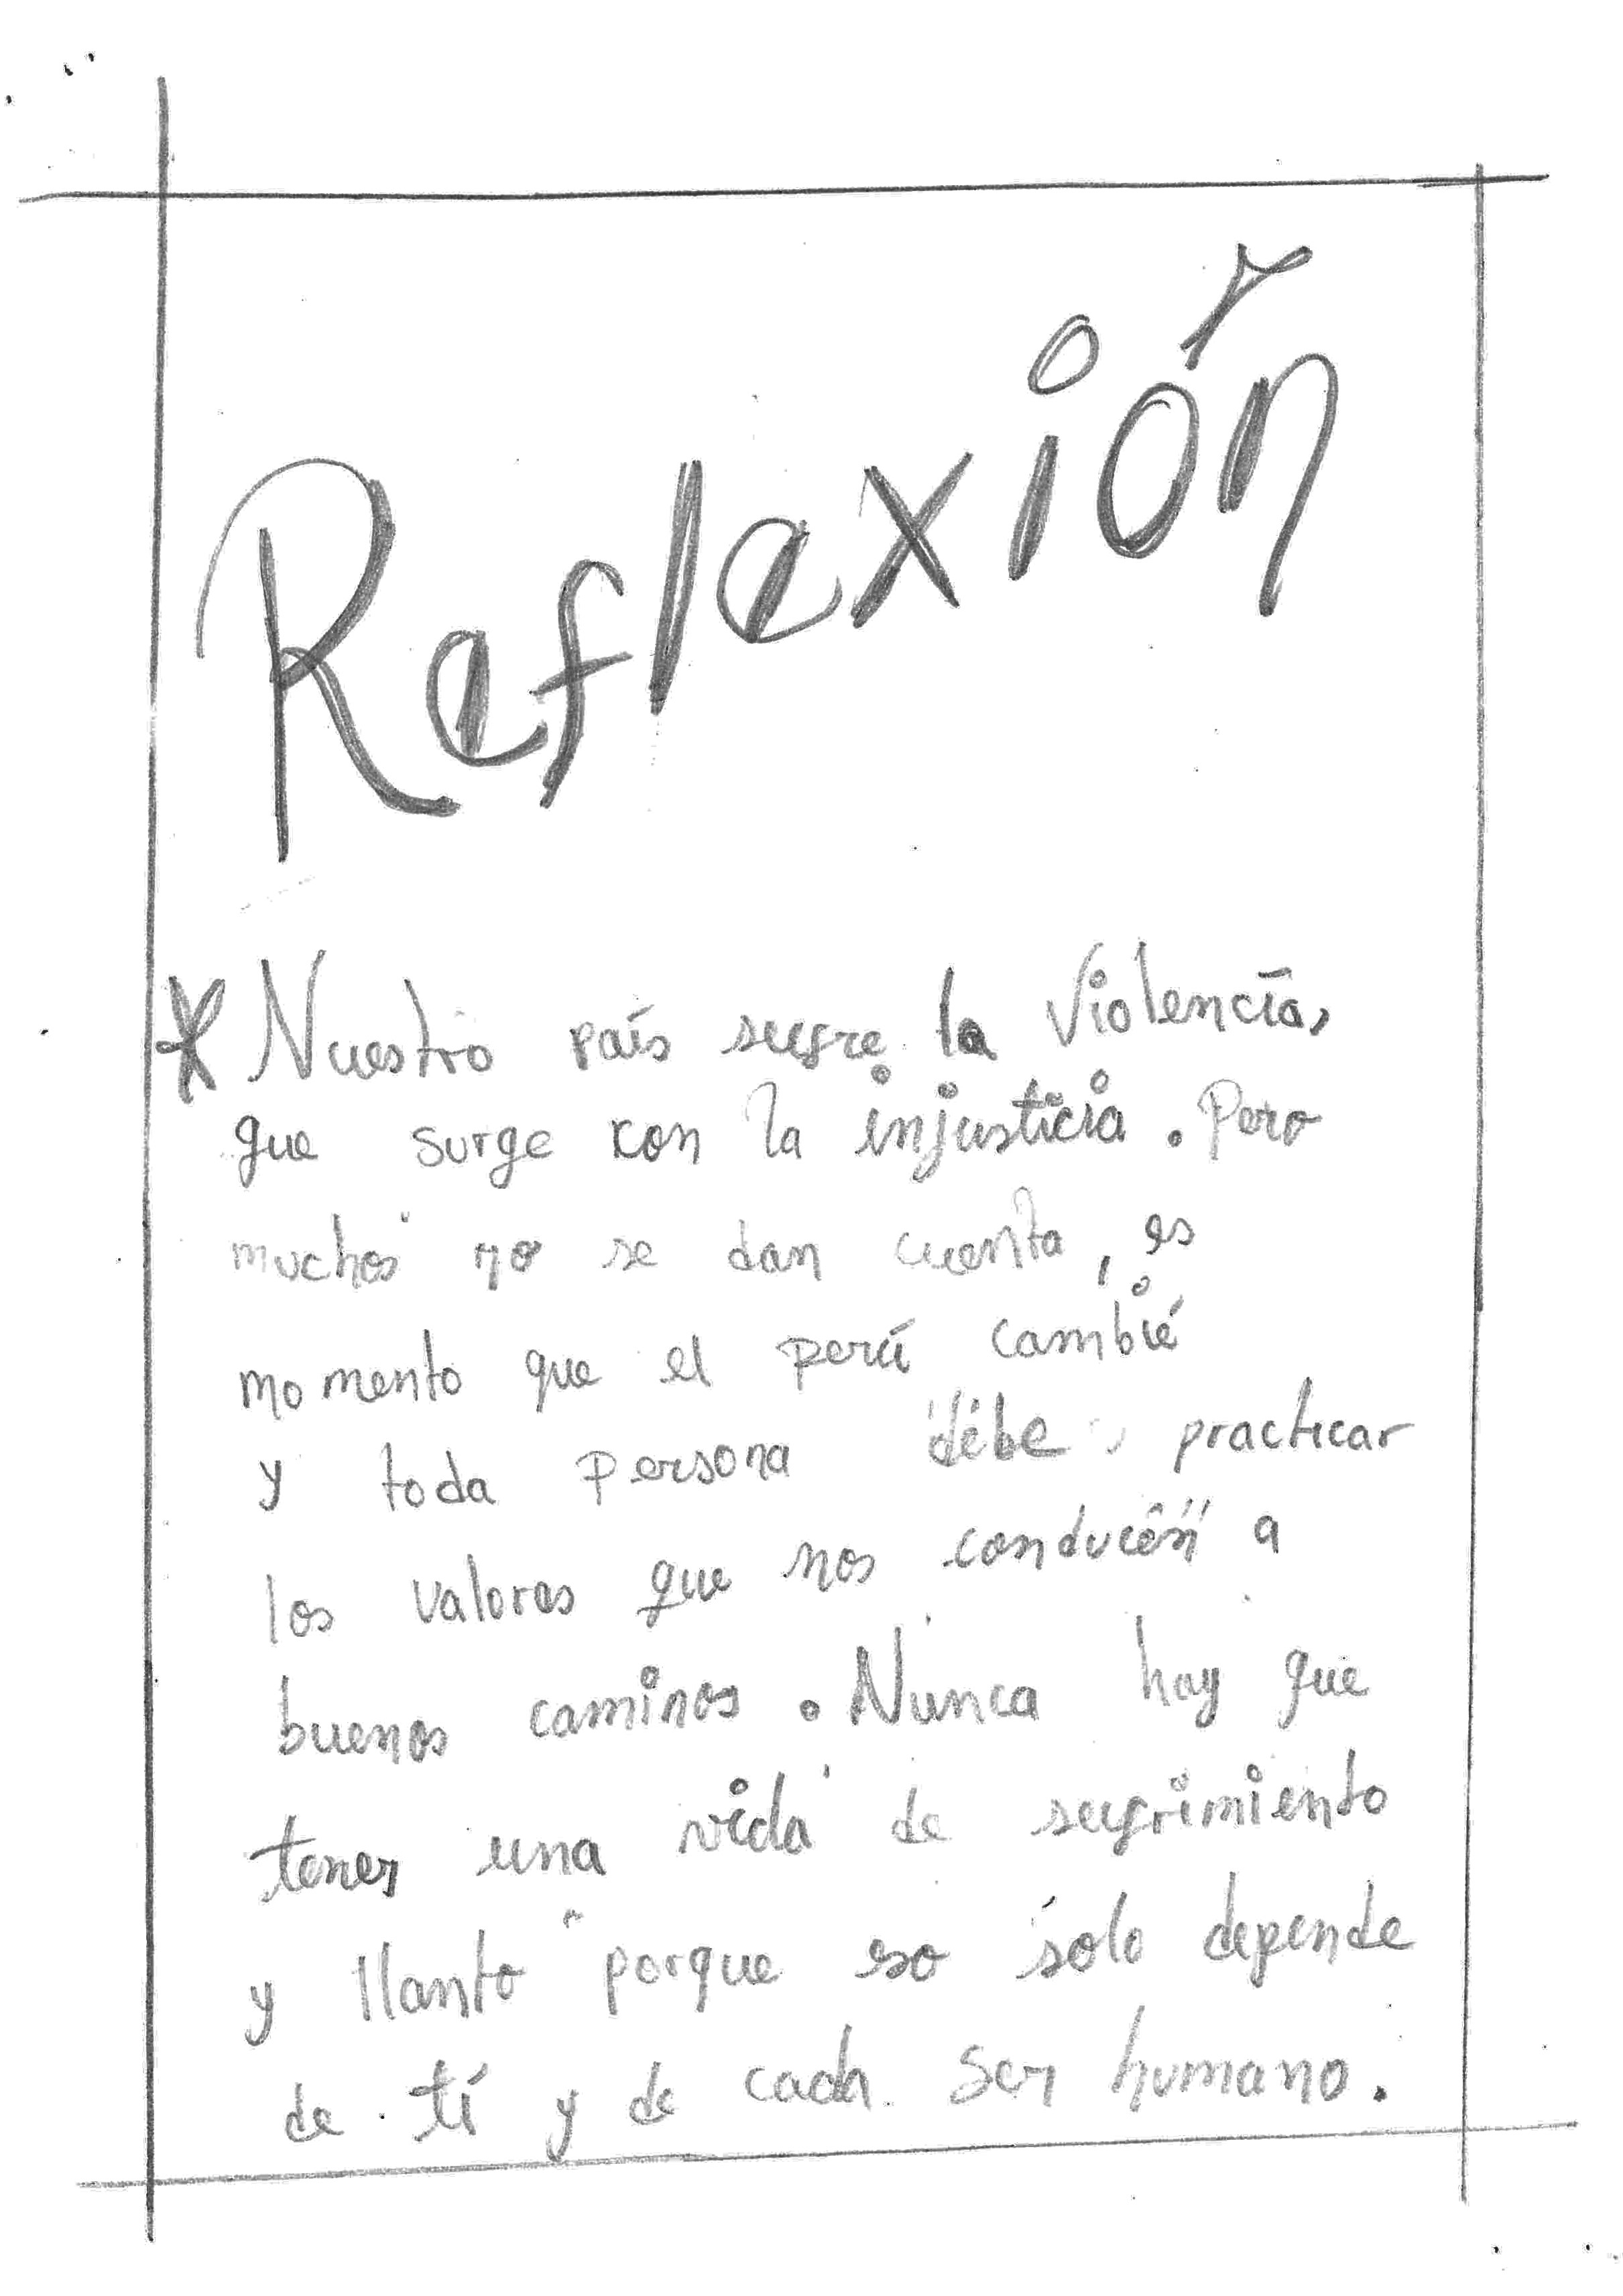 Reflexión
* Nuestro país sufre la violencía,
que surge con la injusticia. Pero
muchos no se dan cuenta, es
momento que el perú cambié
y toda persona débe practicar
los valores que nos conducen a
buenos caminos. Nunca hay que
tener una vida de sufrimiento
y llanto porque eso solo depende
de tí y de cada ser humano.